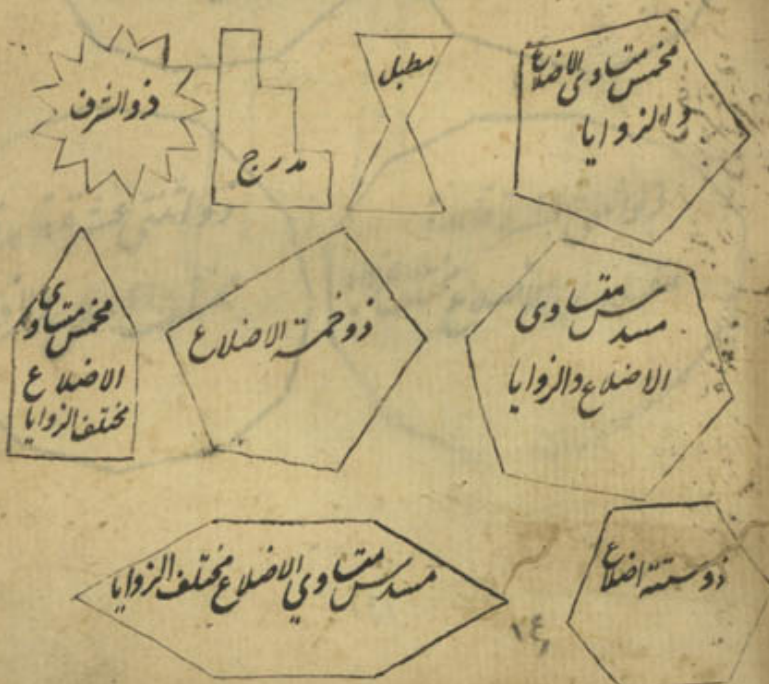 مخمس متساوي الاضلاع
والزوايا
مطبل
مدرج
ذو الشرف
مسدس متساوى
الاضلاع والزوايا
ذو خمسة الاضلاع
مخمس متساوي
الاضلاع
مختلف الزوايا
ذو ستة اضلاع
مسدس متساوي الاضلاع مختلف الزوايا